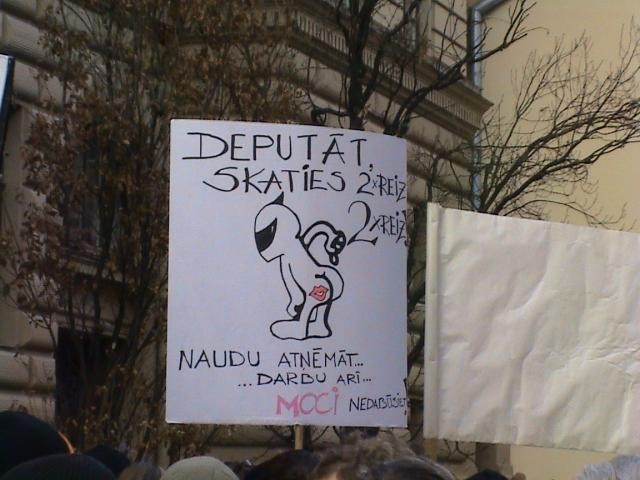 DEPUTĀT,
SKATIES 2xREIZ
2xREIZ!
NAUDU ATŅĒMĀT...
...DARBU ARĪ...
MOCI NEDABŪSIET!